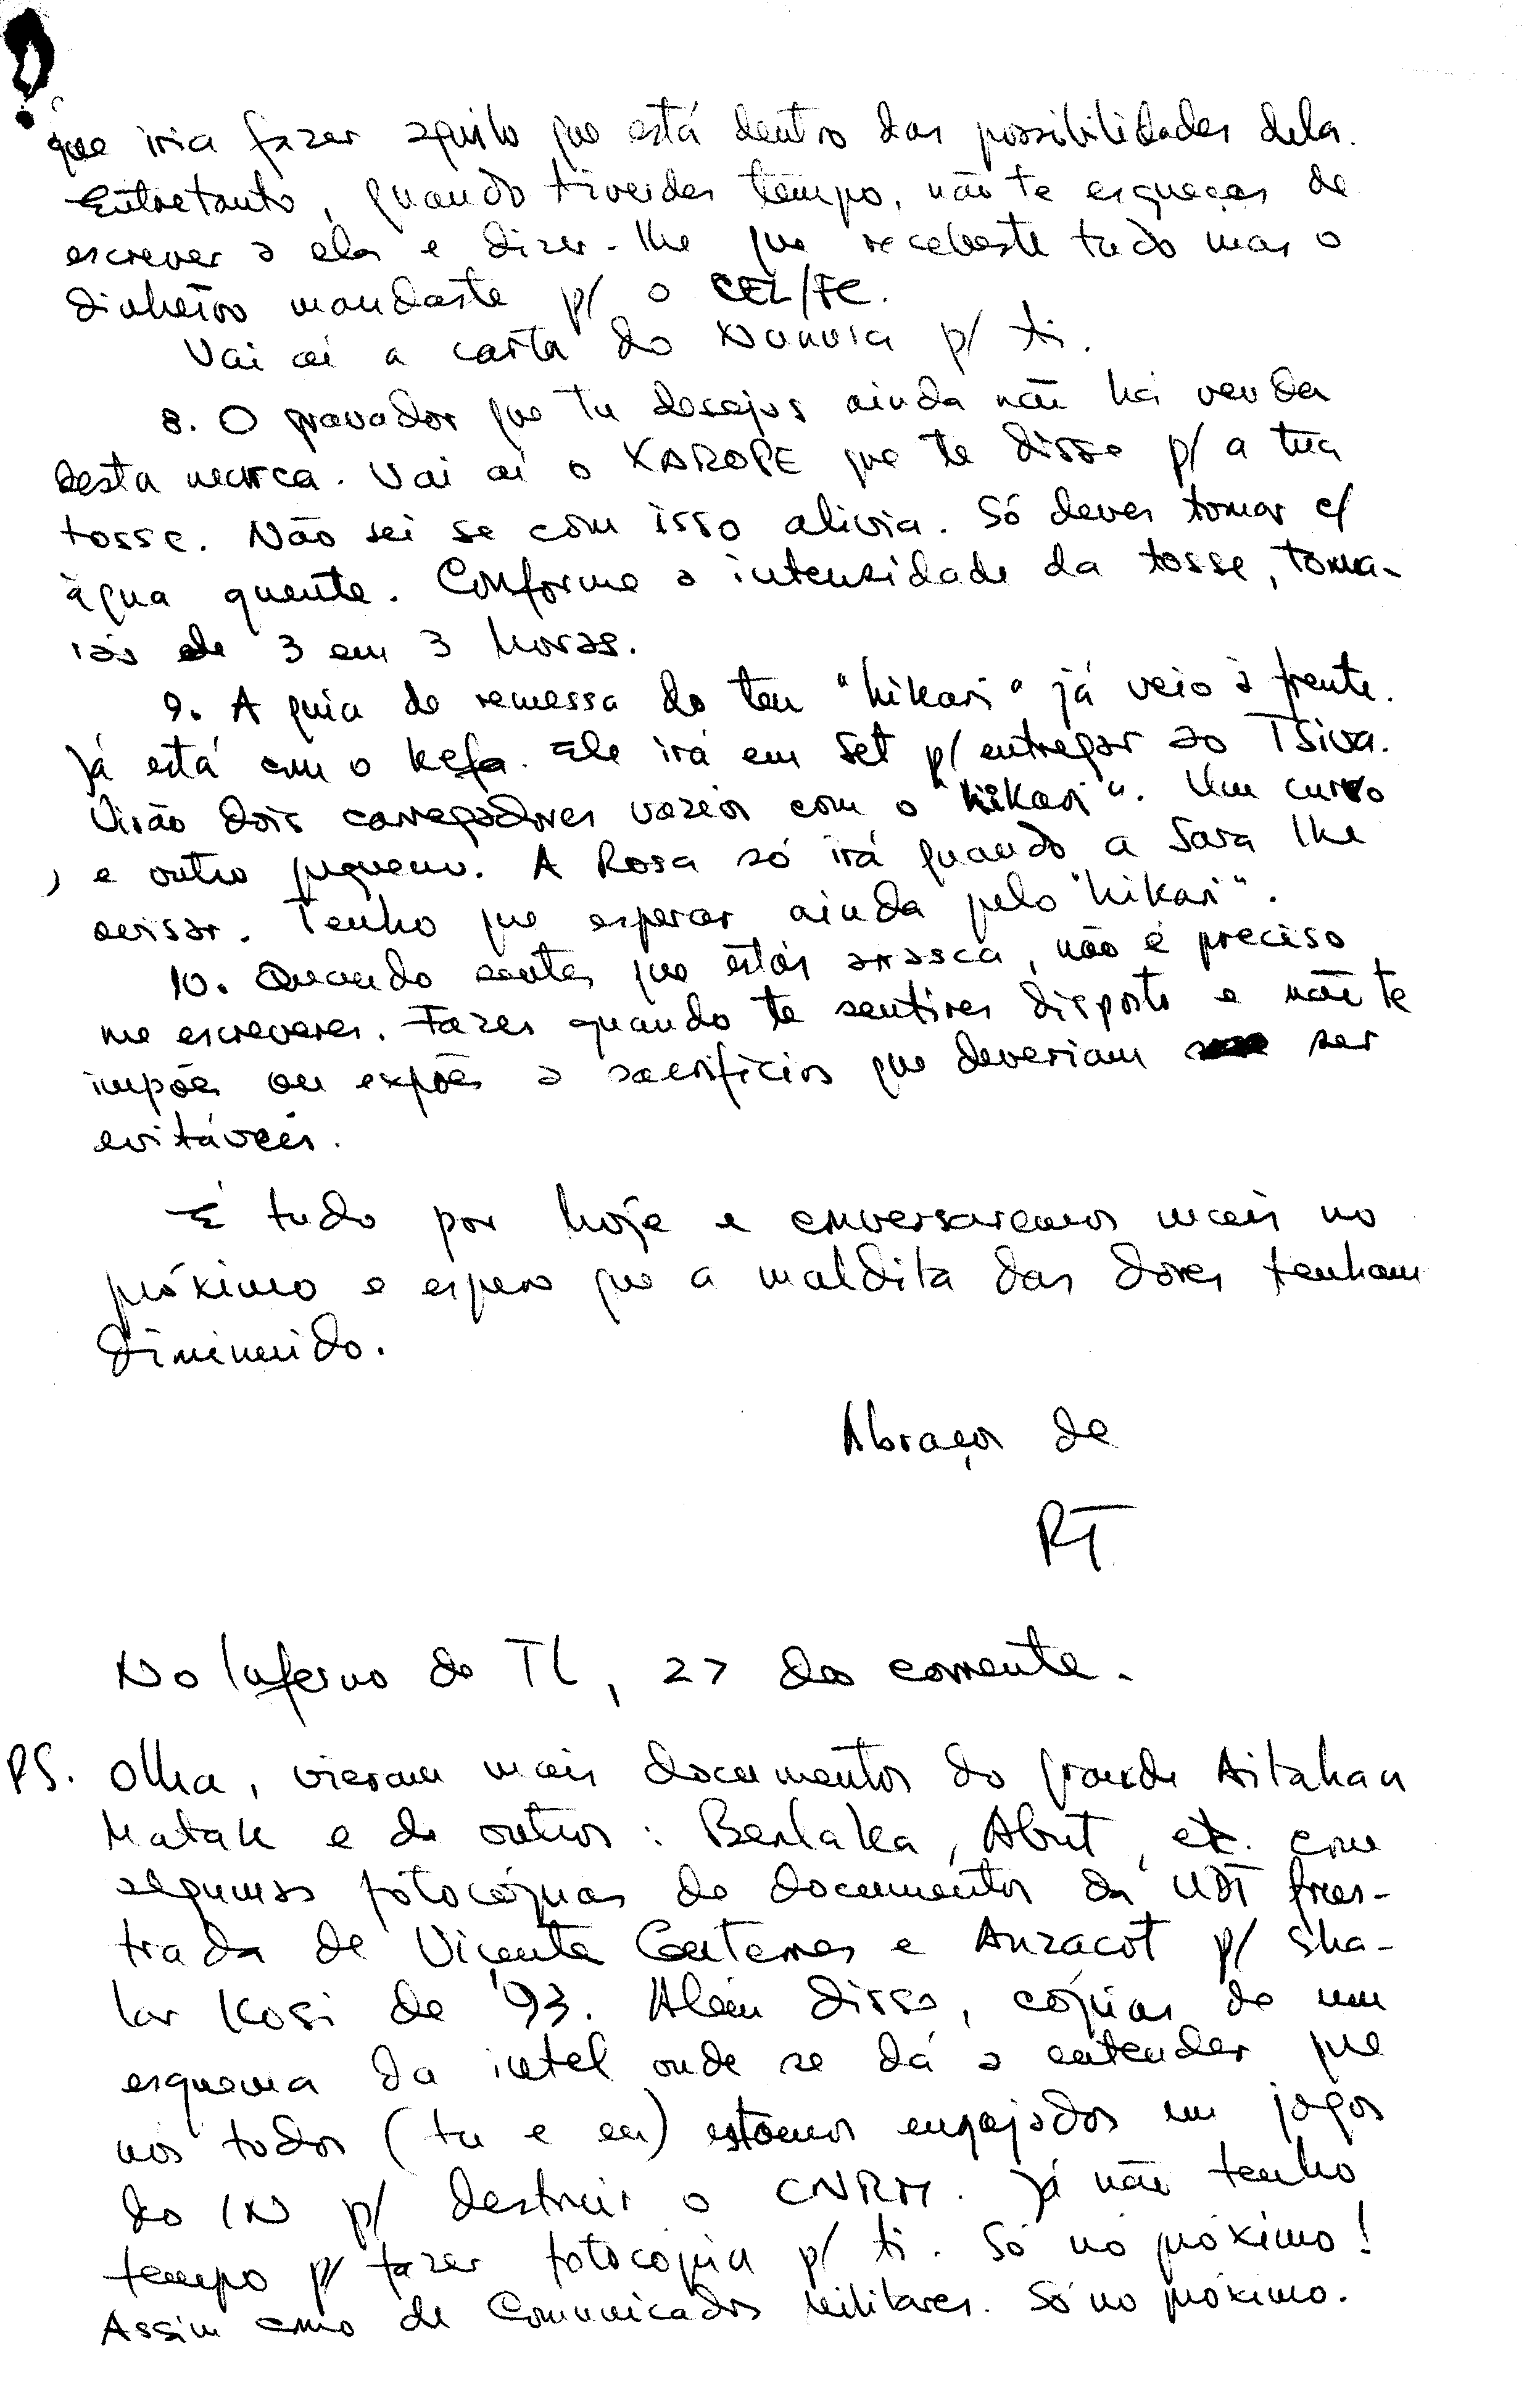 que iria fazer aquilo que está dentro das possibilidades dela.
Entretanto, quando tiverdes tempo, não te esqueças de
escrever a ela e dizer-lhe que recebeste tudo mas o
dinheiro mandaste p/ o CEL/FC.
Vai aí a carta do Nunura p/ ti.
8. O gravador que tu desejas ainda não há venda
desta marca. Vai aí o XAROPE que te disse p/ a tua
tosse. Não sei se com isso alivia. Só deves tomar c/
água quente. Conforme a intensidade da tosse, toma-
rás de 3 em 3 horas.
9. A guia de remessa do teu "hikari" já veio à frente.
Já está com o Kefa. Ele irá em Set p/ entregar ao Tsiva.
Virão dois carregadores vazios com o "hikari". Um curvo
e outro pequeno. A Rosa só irá quando a Sara lhe
avisar. Tenho que esperar ainda pelo "hikari".
10. Quando sentes que estás à rasca, não é preciso
me escreveres. Fazes quando te sentires disposto e não te
impões ou expões a sacrifícios que deveriam ser
evitáveis.
É tudo por hoje e conversaremos mais no
próximo e espero que a maldita das dores tenham
diminuido.
Abraços de
RT
No Inferno de TL, 27 do corrente.
PS. Olha, vieram mais documentos do grande Aitahan
Matak e de outros: Berlaka, Abut, etc. com
algumas fotocópias de documentos da UDT frus-
trada de Vicente Guterres e Anzacot p/ Sha-
lar Kosi de '93. Além disso, cópias de um
esquema da intel onde se dá a entender que
nós todos (tu e eu) estamos engajados em jogos
do IN p/ destruir o CNRM. Já não tenho
tempo p/ fazer fotocopia p/ ti. Só no próximo!
Assim como de Comunicados Militares. Só no próximo.